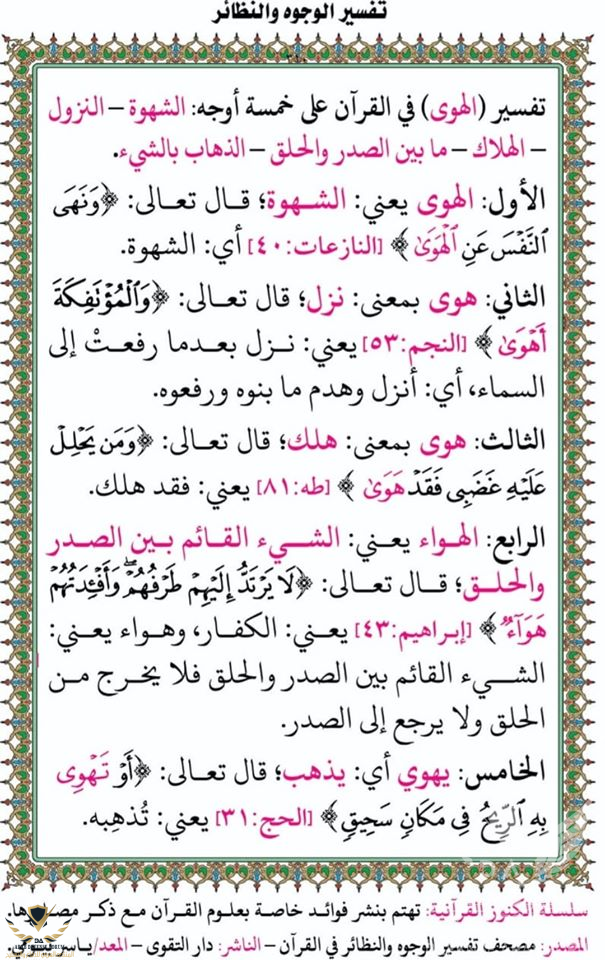 تفسير الوجوه والنظائر
تفسير (الهوى) في القرآن على خمسة أوجه: الشهوة – النزول
– الهلاك – ما بين الصدر والحلق – الذهاب بالشيء.
الأول: الهوى يعني: الشهوة؛ قال تعالى: ﴿وَنَهَى
ٱلنَّفۡسَ عَنِ ٱلۡهَوَىٰ﴾ [النازعات:٤٠] أي: الشهوة.
الثاني: هوى بمعنى: نزل؛ قال تعالى: ﴿وَٱلۡمُؤۡتَفِكَةَ
أَهۡوَىٰ﴾ [النجم:٥٣] يعني: نزل بعدما رفعتْ إلى
السماء، أي: أنزل وهدم ما بنوه ورفعوه.
الثالث: هوى بمعنى: هلك؛ قال تعالى: ﴿وَمَن يَحۡلِلۡ
عَلَيۡهِ غَضَبِى فَقَدۡ هَوَىٰ﴾ [طه:٨١] يعني: فقد هلك.
الرابع: الهواء يعني: الشيء القائم بين الصدر
والحلق؛ قال تعالى: ﴿لَا يَرۡتَدُّ إِلَيۡهِمۡ طَرۡفُهُمۡۖ وَأَفۡـِٔدَتُهُمۡ
هَوَآءٞ﴾ [إبراهيم:٤٣] يعني: الكفار، وهواء يعني:
الشيء القائم بين الصدر والحلق فلا يخرج من
الحلق ولا يرجع إلى الصدر.
الخامس: يهوي أي: يذهب؛ قال تعالى: ﴿أَوۡ تَهۡوِى
بِهِ ٱلرِّيحُ فِى مَكَانٖ سَحِيقٖ﴾ [الحج:٣١] يعني: تُذهِبه.
سلسلة الكنوز القرآنية: تهتم بنشر فوائد خاصة بعلوم القرآن مع ذكر مصادرها.
المصدر: مصحف تفسير الوجوه والنظائر في القرآن – الناشر: دار التقوى – المعد/ياسر
DA